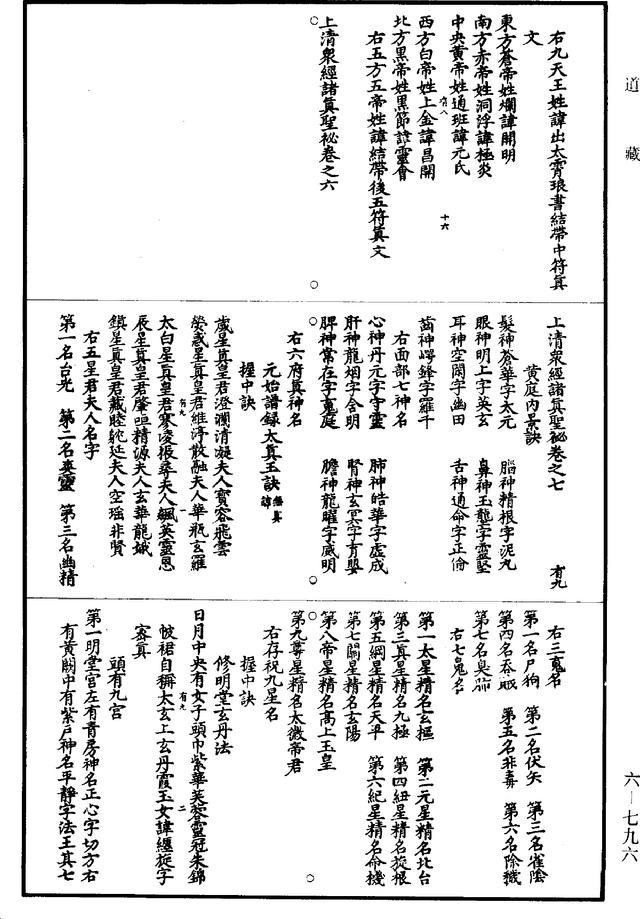 道藏
右九天王姓諱出太霄琅書結帶中符真
文
東方蒼帝姓爛諱開明
南方赤帝姓洞浮諱極炎
中央黃帝姓通班諱元氏
有八
十六
西方白帝姓上金諱昌開
北方黑帝姓黑節諱靈會
右五方五帝姓諱結帶後五符真文
上清衆經諸真聖祕卷之六
上清衆經諸真聖祕卷之七
有九
黃庭內景訣
髮神蒼華字太元
腦神精根字泥丸
眼神明上字英玄
鼻神玉壟字靈堅
耳神空閑字幽田
舌神通命字正倫
齒神崿鋒字羅千
右面部七神名
心神丹元字守靈
肺神皓華字虛成
肝神龍烟字含明
腎神玄冥字育嬰
脾神常在字魂庭
膽神龍曜字威明
右六府真神名
元始譜録太真玉訣
握中訣
歲星真皇君澄瀾清凝夫人寳容飛雲
熒惑星真皇君維淳散融夫人華瓶玄羅
太白星真皇君寒淩振尋夫人飆英靈恩
有九
一
辰星真皇君肇恒精源夫人玄華龍娥
鎮星真皇君藏睦躭延夫人空瑶非賢
右五星君夫人名字
第一名台光
第二名爽靈
第三名幽精
右三䰟名
第一名尸狗
第二名伏矢
第三名雀陰
第四名吞賊
第五名非毒
第六名除穢
第七名臭肺
右七魄名
第一太星精名玄樞
第二元星精名北台
第三真星精名九極
第四紐星精名璇根
第五綱星精名天平
第六紀星精名命機
第七關星精名玄陽
第八帝星精名高上玉皇
第九尊星精名太微帝君
右存祝九星名
握中訣
修明堂玄丹法
日月中央有女子頭巾紫華芙蓉靈冠朱錦
有九
二
帔裙自稱太玄上玄丹霞玉女諱纏旋字
密真
頭有九宮
第一明堂宮左有青房神名正心字切方右
有黃闕中有紫戶神名平靜字法王其七
六—七九六